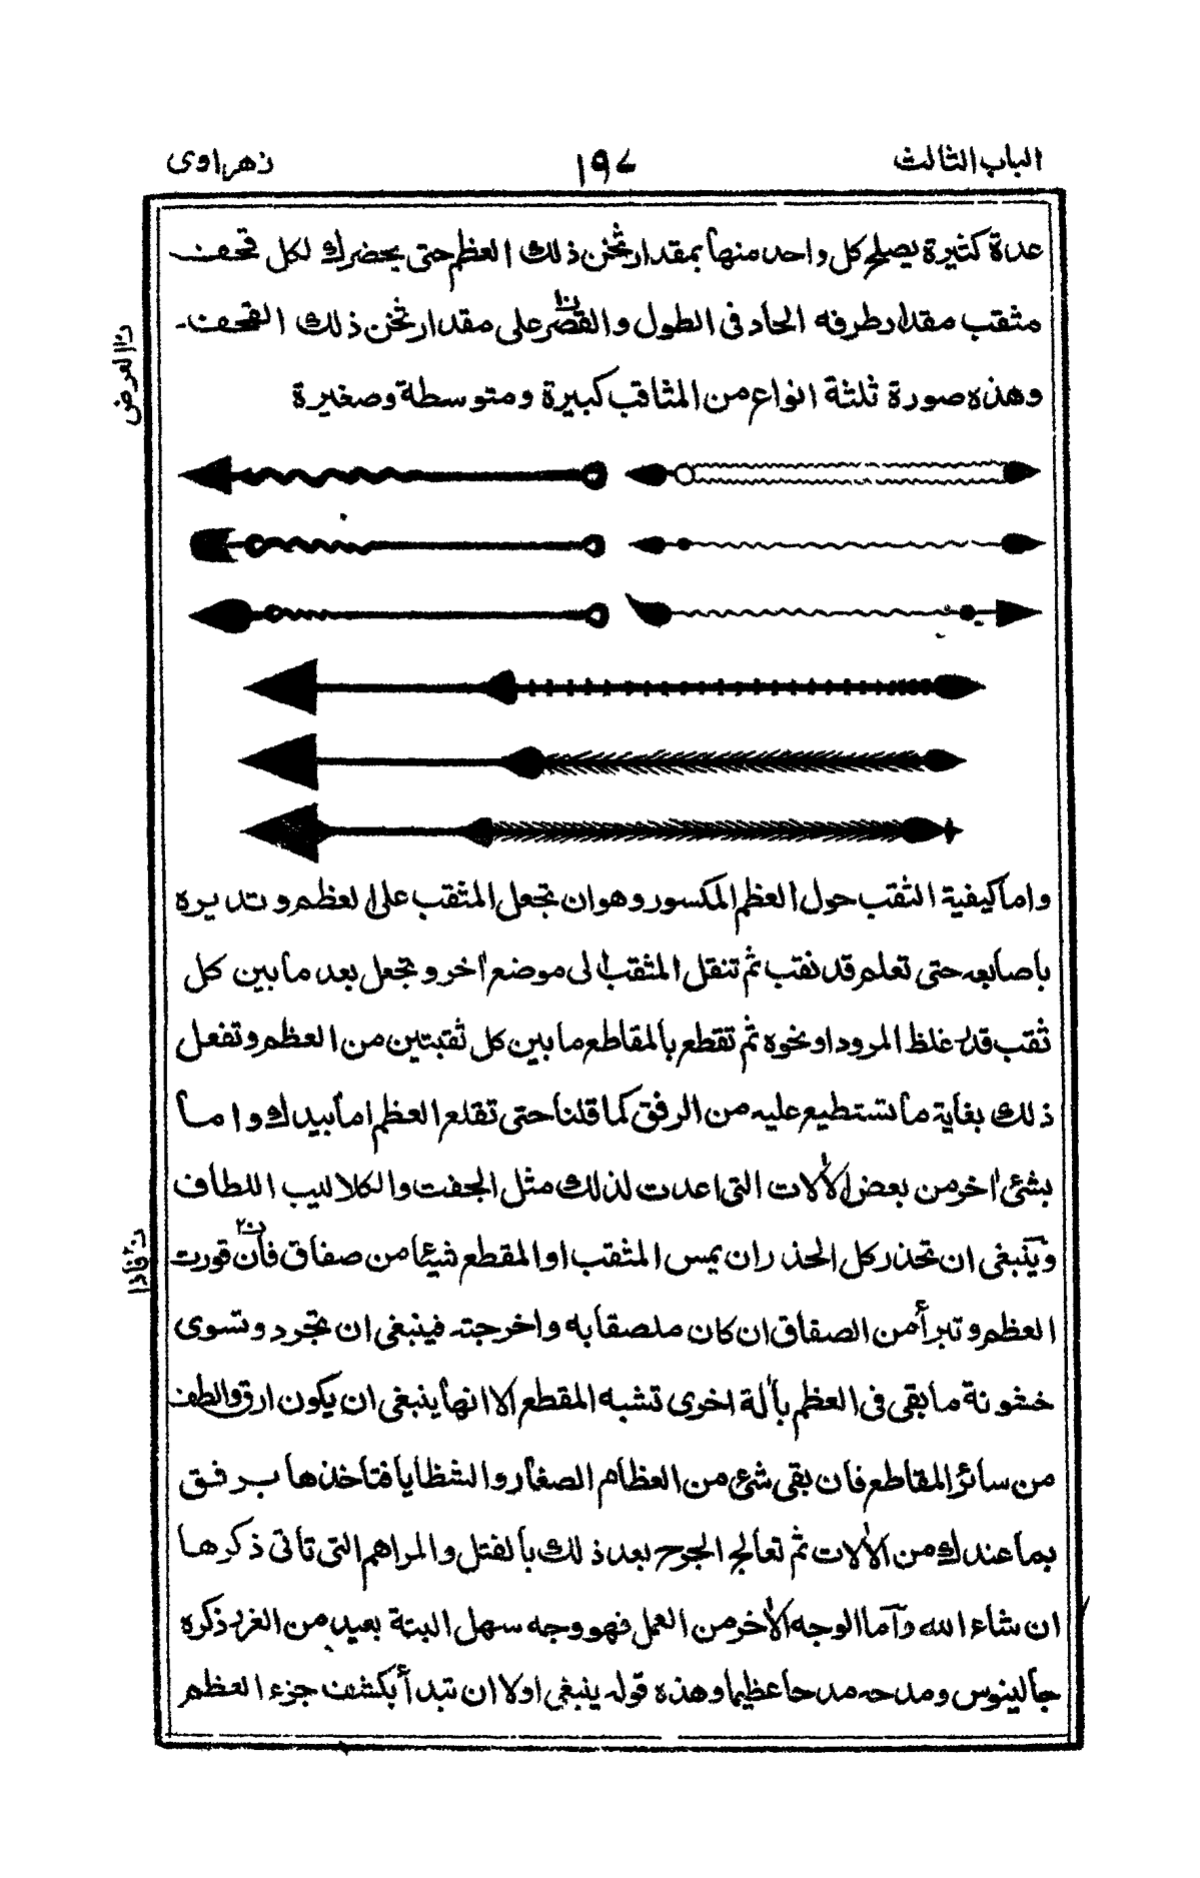 الباب الثالث
١٩٧
زهراوی
عدة كثيرة يصلح كل واحد منها بمقدار ثخن ذلك العظم حتى يحضرك لكل قحف
مثقب مقدار طرفه الحاد فى الطول والقصر على مقدار ثخن ذلك القحف
ن١ العرض
وهذه صورة ثلثة انواع من المثاقب كبيرة ومتوسطة وصغيرة
واما كيفية الثقب حول العظم المكسور وهو ان تجعل المثقب على العظم وتديره
باصابعه حتى تعلم قد نقب ثم تنقل المثقب الى موضع اخر وتجعل بعد ما بين كل
ثقب قدر غلظ المرود او نحوه ثم تقطع بالمقاطع ما بين كل ثقبتين من العظم وتفعل
ذلك بغاية ما تستطيع عليه من الرفق كما قلنا حتى تقلع العظم اما بيدك واما
بشئ اخر من بعض الألات التى اعدت لذلك مثل الجفت والكلاليب اللطاف
وينبغى ان تحذر كل الحذر ان يمس المثقب او المقطع شيئا من صفاق فان قورت
ن٢ فاذا
العظم وتبرأ من الصفاق ان كان ملصقا به واخرجته فينبغى ان تجرد وتسوى
خشونة ما بقى فى العظم بألة اخرى تشبه المقطع الا انها ينبغى ان يكون ارق والطف
من سائر المقاطع فان بقى شئ من العظام الصغار والشظايا فتاخذها برفق
بما عندك من الألات ثم تعالج الجرح بعد ذلك بالفتل والمراهم التى تاتى ذكرها
ان شاء الله وآما الوجه الأخر من العمل فهو وجه سهل البتة بعيد من الغرر ذكره
جالينوس ومدحه مدحا عظيما وهذه قوله ينبغى اولا ان تبدأ بكشف جزء العظم